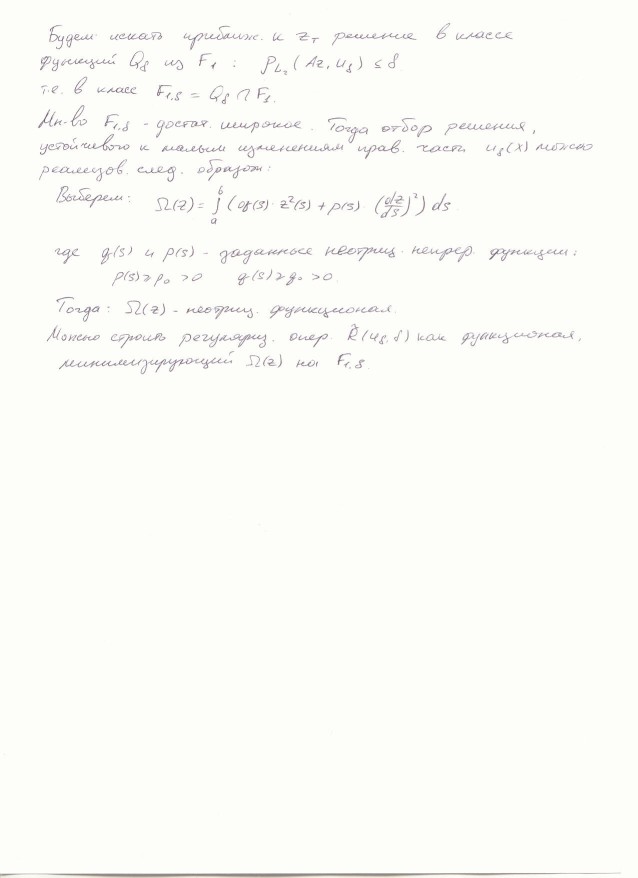 Будем искать приближ. к z_T решение в классе
функций Q_δ из F_1 : ρ_{L_2}(Az, u_δ) ≤ δ
т.е. в класс F_{1,δ} = Q_δ ∩ F_1.
Мн-во F_{1,δ} - достат. широкое. Тогда отбор решения,
устойчивого к малым изменениям прав. часть u_δ(x) можно
реализов. след. образом:
Выберем: Ω(z) = ∫_a^b (q(s)·z²(s) + p(s)·(dz/ds)²) ds.
где q(s) и p(s) - заданные неотриц. непрер. функции:
p(s) ≥ p_0 > 0 q(s) ≥ q_0 > 0.
Тогда: Ω(z) - неотриц. функционал.
Можно строить регуляриз. опер. R̃(u_δ, δ) как функционал,
минимизирующий Ω(z) на F_{1,δ}.